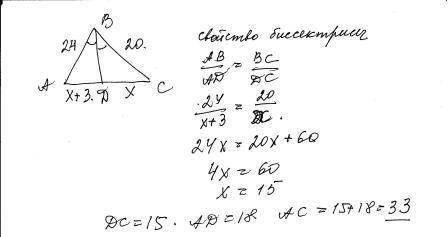 B
24 20.
A x+3. D x C
свойство биссектрисы
AB/AD = BC/DC
24/x+3 = 20/x.
24x = 20x + 60
4x = 60
x = 15
DC = 15. AD = 18 AC = 15+18 = 33